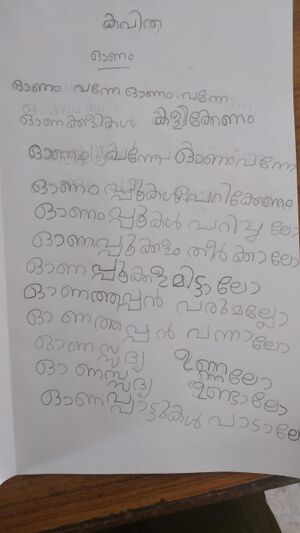 കവിത
ഓണം
ഓണം വന്നേ ഓണം വന്നേ
ഓണക്കളികൾ കളിക്കേണം
ഓണം വന്നേ ഓണം വന്നേ
ഓണം പൂക്കള് പറിക്കേണം
ഓണം പൂക്കൾ പറിച്ചു ലോ
ഓണപ്പൂക്കളം തീർക്കാലോ
ഓണപ്പൂക്കളമിട്ടാലോ
ഓണത്തപ്പൻ വരുമല്ലോ
ഓണത്തപ്പൻ വന്നാലോ
ഓണസ്സദ്യ ഉണ്ണലോ
ഓണസ്സദ്യ ഉണ്ടാലോ
ഓണപ്പാട്ടുകൾ പാടാലോ